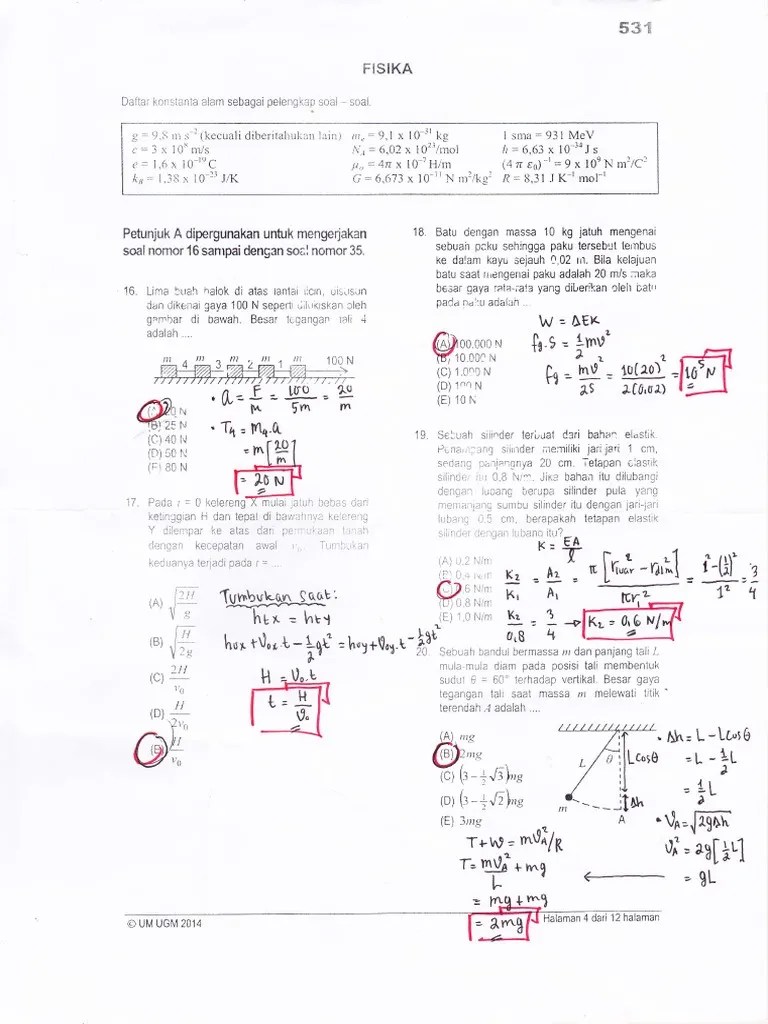 531
FISIKA
Daftar konstanta alam sebagai pelengkap soal – soal.
g = 9,8 m s⁻² (kecuali diberitahukan lain) mₑ = 9,1 x 10⁻³¹ kg 1 sma = 931 MeV
c = 3 x 10⁸ m/s N_A = 6,02 x 10²³/mol h = 6,63 x 10⁻³⁴ J s
e = 1,6 x 10⁻¹⁹ C μ₀ = 4π x 10⁻⁷ H/m (4 π ε₀)⁻¹ = 9 x 10⁹ N m²/C²
k_B = 1,38 x 10⁻²³ J/K G = 6,673 x 10⁻¹¹ N m²/kg² R = 8,31 J K⁻¹ mol⁻¹
Petunjuk A dipergunakan untuk mengerjakan
soal nomor 16 sampai dengan soal nomor 35.
16. Lima buah balok di atas lantai licin, disusun
dan dikenai gaya 100 N seperti dilukiskan oleh
gambar di bawah. Besar tegangan tali 4
adalah ....
m 4 m 3 m 2 m 1 m 100 N
(A) 20 N
(B) 25 N
(C) 40 N
(D) 50 N
(E) 80 N
• a = F/m = 100/5m = 20/m
• T₄ = m₄.a
= m[20/m]
= 20 N
17. Pada t = 0 kelereng X mulai jatuh bebas dari
ketinggian H dan tepat di bawahnya kelereng
Y dilempar ke atas dari permukaan tanah
dengan kecepatan awal v₀. Tumbukan
keduanya terjadi pada t = ....
(A) √(2H/g)
(B) √(H/2g)
(C) 2H/v₀
(D) H/2v₀
(E) H/v₀
Tumbukan saat:
htx = hty
hox + Vox.t - 1/2 gt² = hoy + Voy.t - 1/2 gt²
H = V₀.t
t = H/V₀
18. Batu dengan massa 10 kg jatuh mengenai
sebuah paku sehingga paku tersebut tembus
ke dalam kayu sejauh 0,02 m. Bila kelajuan
batu saat mengenai paku adalah 20 m/s maka
besar gaya rata-rata yang diberikan oleh batu
pada paku adalah ....
(A) 100.000 N
(B) 10.000 N
(C) 1.000 N
(D) 100 N
(E) 10 N
W = ΔEK
fg.S = 1/2 mv²
fg = mv²/2S = 10(20)²/2(0,02) = 10⁵ N
19. Sebuah silinder terbuat dari bahan elastik.
Penampang silinder memiliki jari-jari 1 cm,
sedang panjangnya 20 cm. Tetapan elastik
silinder itu 0,8 N/m. Jika bahan itu dilubangi
dengan lubang berupa silinder pula yang
memanjang sumbu silinder itu dengan jari-jari
lubang 0,5 cm, berapakah tetapan elastik
silinder dengan lubang itu?
(A) 0,2 N/m
(B) 0,4 N/m
(C) 0,6 N/m
(D) 0,8 N/m
(E) 1,0 N/m
K = EA/l
K₂/K₁ = A₂/A₁ = π[r²luar - r²dlm]/πr₁² = 1²-(1/2)²/1² = 3/4
K₂/0,8 = 3/4 → K₂ = 0,6 N/m
20. Sebuah bandul bermassa m dan panjang tali L
mula-mula diam pada posisi tali membentuk
sudut θ = 60° terhadap vertikal. Besar gaya
tegangan tali saat massa m melewati titik
terendah A adalah ....
(A) mg
(B) 2mg
(C) (3 – ½√3)mg
(D) (3 – ½√2)mg
(E) 3mg
L θ Lcosθ
Δh
m A
• Δh = L - Lcosθ
= L - 1/2 L
= 1/2 L
• VA = √2gΔh
VA² = 2g[1/2 L]
= gL
T + W = mVA²/R
T = mVA²/L + mg
= mg + mg
= 2mg
© UM UGM 2014
Halaman 4 dari 12 halaman